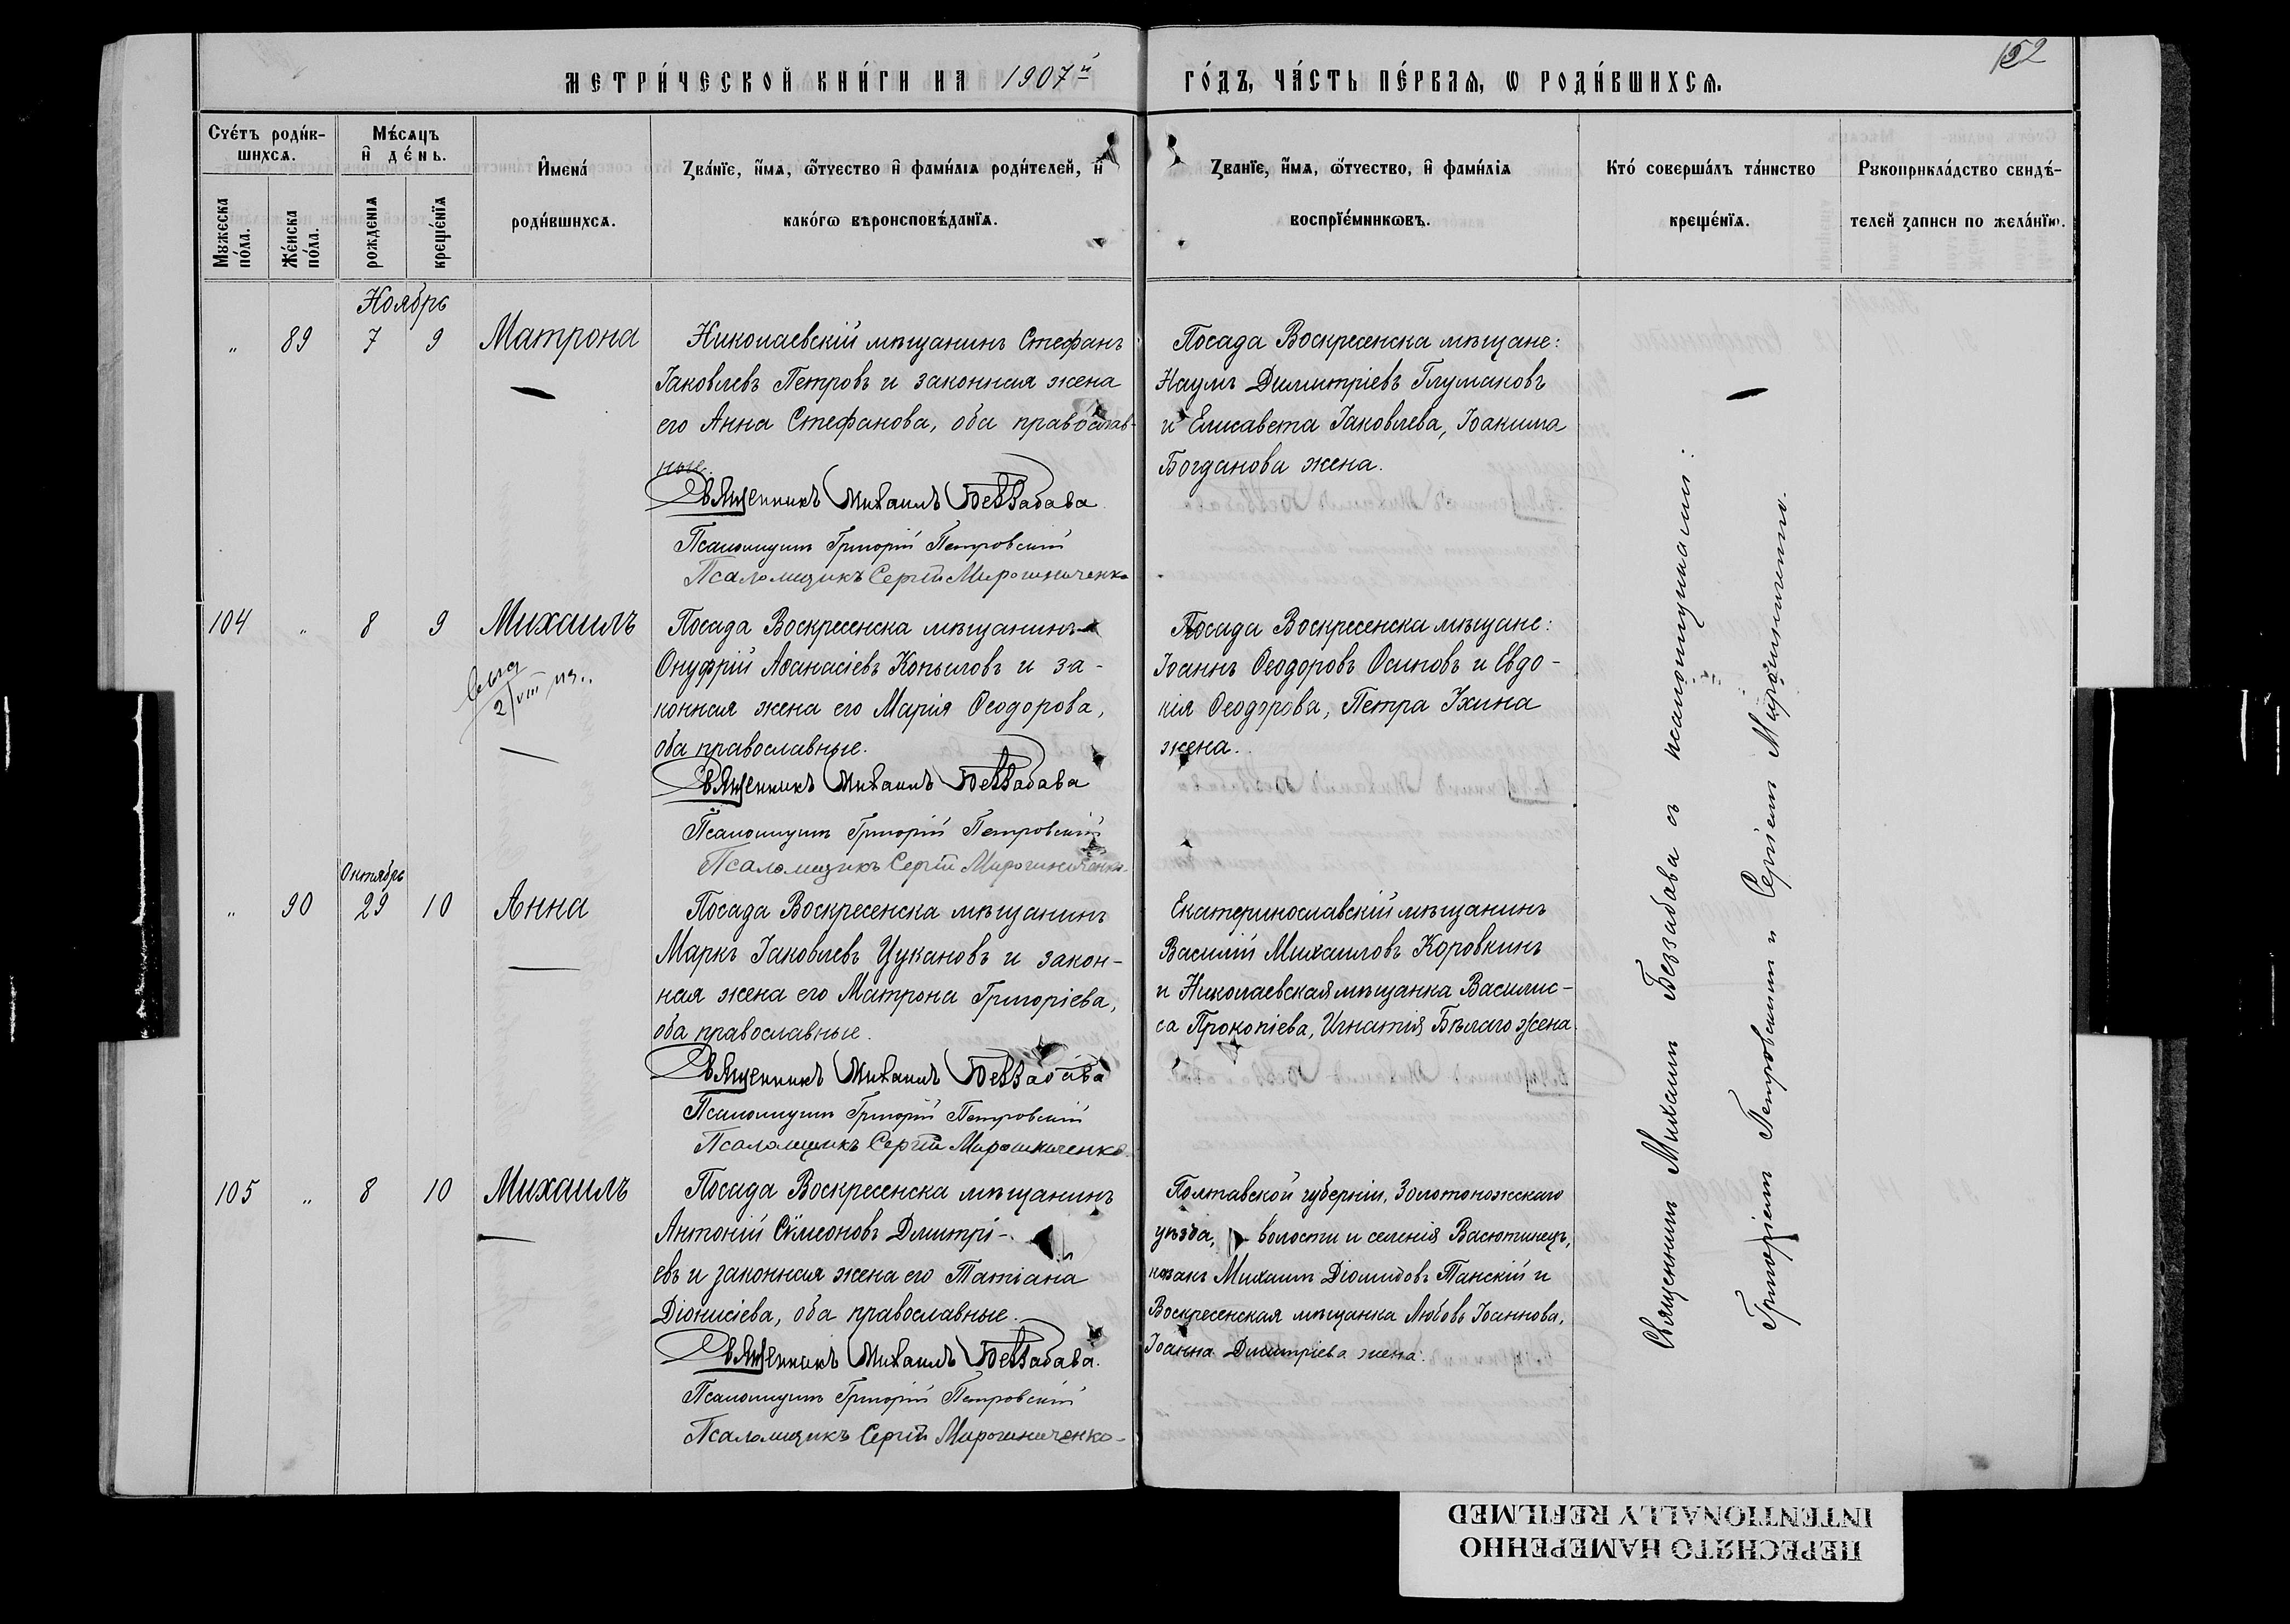 МЕТРИ́ЧЕСКОЙ КНИ́ГИ НА 1907й ГО́ДЪ, ЧА́СТЬ ПЕ́РВАѦ, Ѡ РОДИ́ВШИХСѦ.
152
Счéтъ роди́в-
шихсѧ.
Мꙋжеска
по́ла.
Же́нска
по́ла.
Мѣ́сѧцъ
и҆ де́нь.
рожденїѧ
креще́нїѧ
И҆мена́
роди́вшихсѧ.
Зва́нїе, и҆́мѧ, ѻ҆́тчество и҆ фами́лїѧ роди́телей, и҆
како́гѡ вѣроисповѣ́данїѧ.
Зва́нїе, и҆́мѧ, ѻ҆́тчество, и҆ фами́лїѧ
воспрїе́мникѡвъ.
Кто́ соверша́лъ та́инство
креще́нїѧ.
Рꙋкоприкла́дство свидѣ́-
телей записи по жела́нїю.
Ноябрь
„ 89 7 9 Матрона
Николаевскій мѣщанинъ Стефанъ
Іаковлевъ Петровъ и законная жена
его Анна Стефанова, оба православ-
ные.
Священникъ Михаилъ Беззабава
Псаломщикъ Григорій Петровскій
Псаломщикъ Сергій Мирошниченко
Посада Воскресенска мѣщане:
Наумъ Димитріевъ Глумаковъ
и Елисавета Іаковлева, Іоакима
Богданова жена.
104 „ 8 9 Михаилъ
2/VIII
Посада Воскресенска мѣщанинъ
Онуфрій Аѳанасіевъ Копыловъ и за-
конная жена его Марія Ѳеодорова,
оба православные.
Священникъ Михаилъ Беззабава
Псаломщикъ Григорій Петровскій
Псаломщикъ Сергій Мирошниченко
Посада Воскресенска мѣщане:
Іоаннъ Ѳеодоровъ Осиповъ и Евдо-
кія Ѳеодорова, Петра Ихина
жена.
Октябрь
„ 90 29 10 Анна
Посада Воскресенска мѣщанинъ
Маркъ Іаковлевъ Цукановъ и закон-
ная жена его Матрона Григоріева,
оба православные.
Священникъ Михаилъ Беззабава
Псаломщикъ Григорій Петровскій
Псаломщикъ Сергій Мирошниченко
Екатеринославскій мѣщанинъ
Василій Михаиловъ Коровкинъ
и Николаевская мѣщанка Василис-
са Прокопіева, Игнатія Бѣлаго жена
105 „ 8 10 Михаилъ
Посада Воскресенска мѣщанинъ
Антоній Симеоновъ Дмитрі-
евъ и законная жена его Татіана
Діонисіева, оба православные.
Священникъ Михаилъ Беззабава.
Псаломщикъ Григорій Петровскій
Псаломщикъ Сергій Мирошниченко
Полтавской губерніи, Золотоножскаго
уѣзда, волости и селенія Васютинецъ,
козакъ Михаилъ Діомидовъ Танскій и
Воскресенская мѣщанка Любовь Іоаннова,
Іоанна Дмитріева жена.
Священникъ Михаилъ Беззабава съ псаломщиками:
Григоріемъ Петровскимъ и Сергіемъ Мирошниченко.
ПЕРЕСНЯТО НАМЕРЕННО
INTENTIONALLY REFILMED